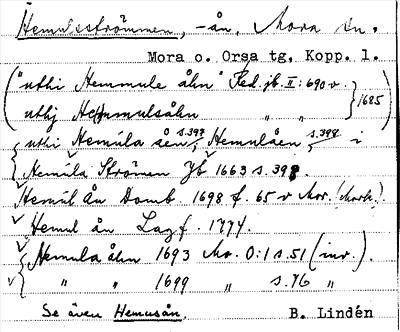 Hemulsströmmen, -ån, Mora sn.
Mora o. Orsa tg, Kopp. l.
("uthi Hemmule åhn" Ked. jb. II: 690 v.
uthj Hemmulsåhn " " } 1685)
uthi Hemúla åen s.397, Hemulåen s.398, i
Hemúla Strömen Jb 1663 s.398.
Hemúl Ån Domb. 1698 f. 65 v Mor. (Mork.)
Hemul ån Lagf. 1774.
Hemula åhn 1693 Mo. O:1 s.51 (inv.).
" " 1699 " s.76 "
Se även Hemusån. B. Lindén